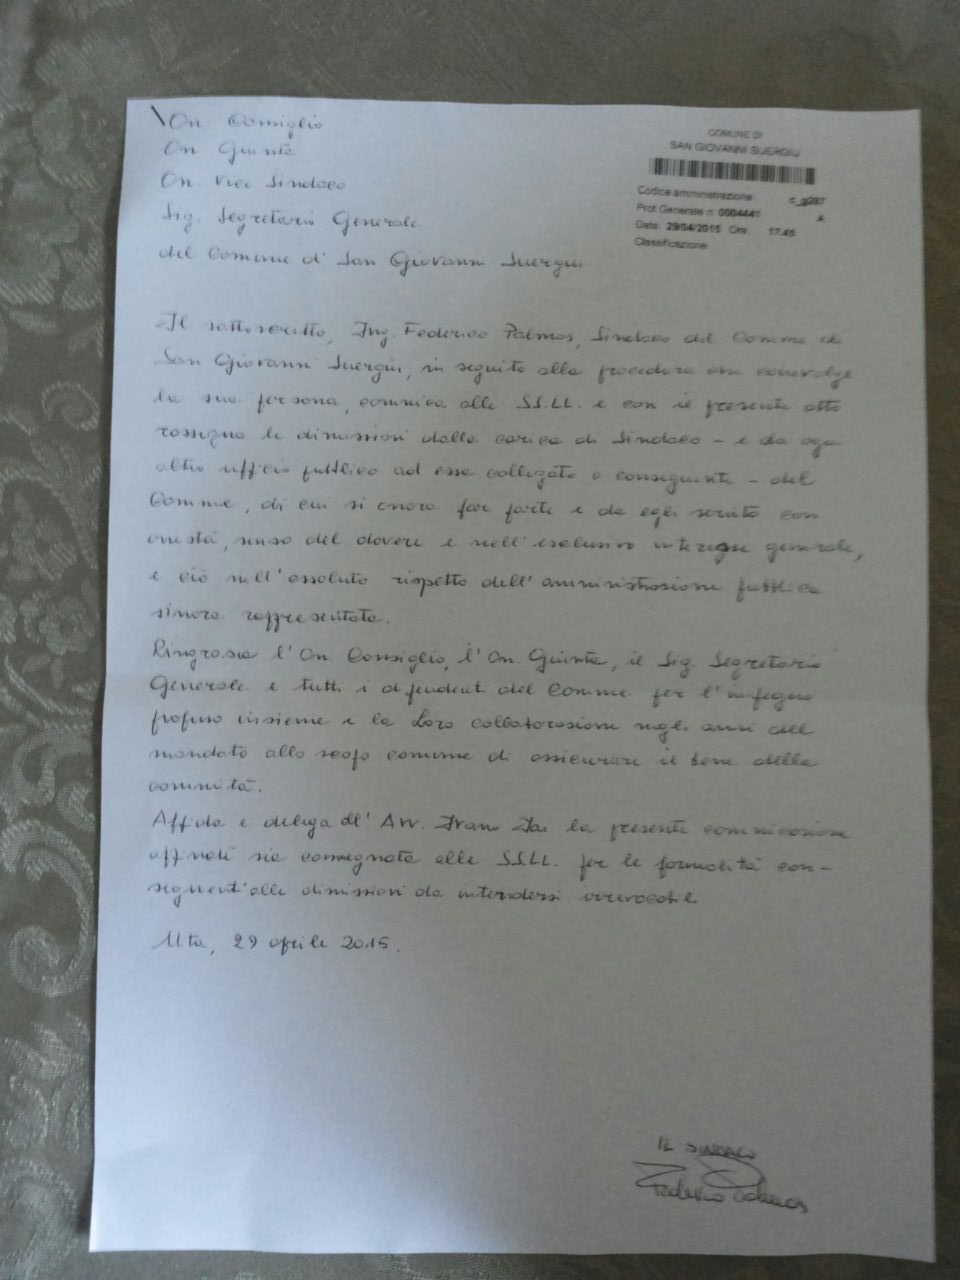 On Consiglio
On Giunta
On. Vice Sindaco
Sig. Segretario Generale
del Comune di San Giovanni Suergiu
COMUNE DI
SAN GIOVANNI SUERGIU
Codice amministrazione: c_g287
Prot.Generale n: 0004441 A
Data: 29/04/2015 Ora: 17:45
Classificazione:
Il sottoscritto, Ing. Federico Palmas, Sindaco del Comune di
San Giovanni Suergiu, in seguito alla procedura che coinvolge
la sua persona, comunica alle SS.LL. e con il presente atto
rassegna le dimissioni dalla carica di Sindaco - e da ogni
altro ufficio pubblico ad essa collegato o conseguente - del
Comune, di cui si onora far parte e da egli servito con
onestà, senso del dovere e nell'esclusivo interesse generale,
e ciò nell'assoluto rispetto dell'amministrazione pubblica
sinora rappresentata.
Ringrazia l'On. Consiglio, l'On. Giunta, il Sig. Segretario
Generale e tutti i dipendenti del Comune per l'impegno
profuso insieme e la Loro collaborazione negli anni del
mandato allo scopo comune di assicurare il bene della
comunità.
Affida e delega all'Avv. Ivano Iai la presente comunicazione
affinché sia consegnata alle SS.LL. per le formalità con-
seguenti alle dimissioni da intendersi irrevocabili.
Uta, 29 aprile 2015.
IL SINDACO
Federico Palmas